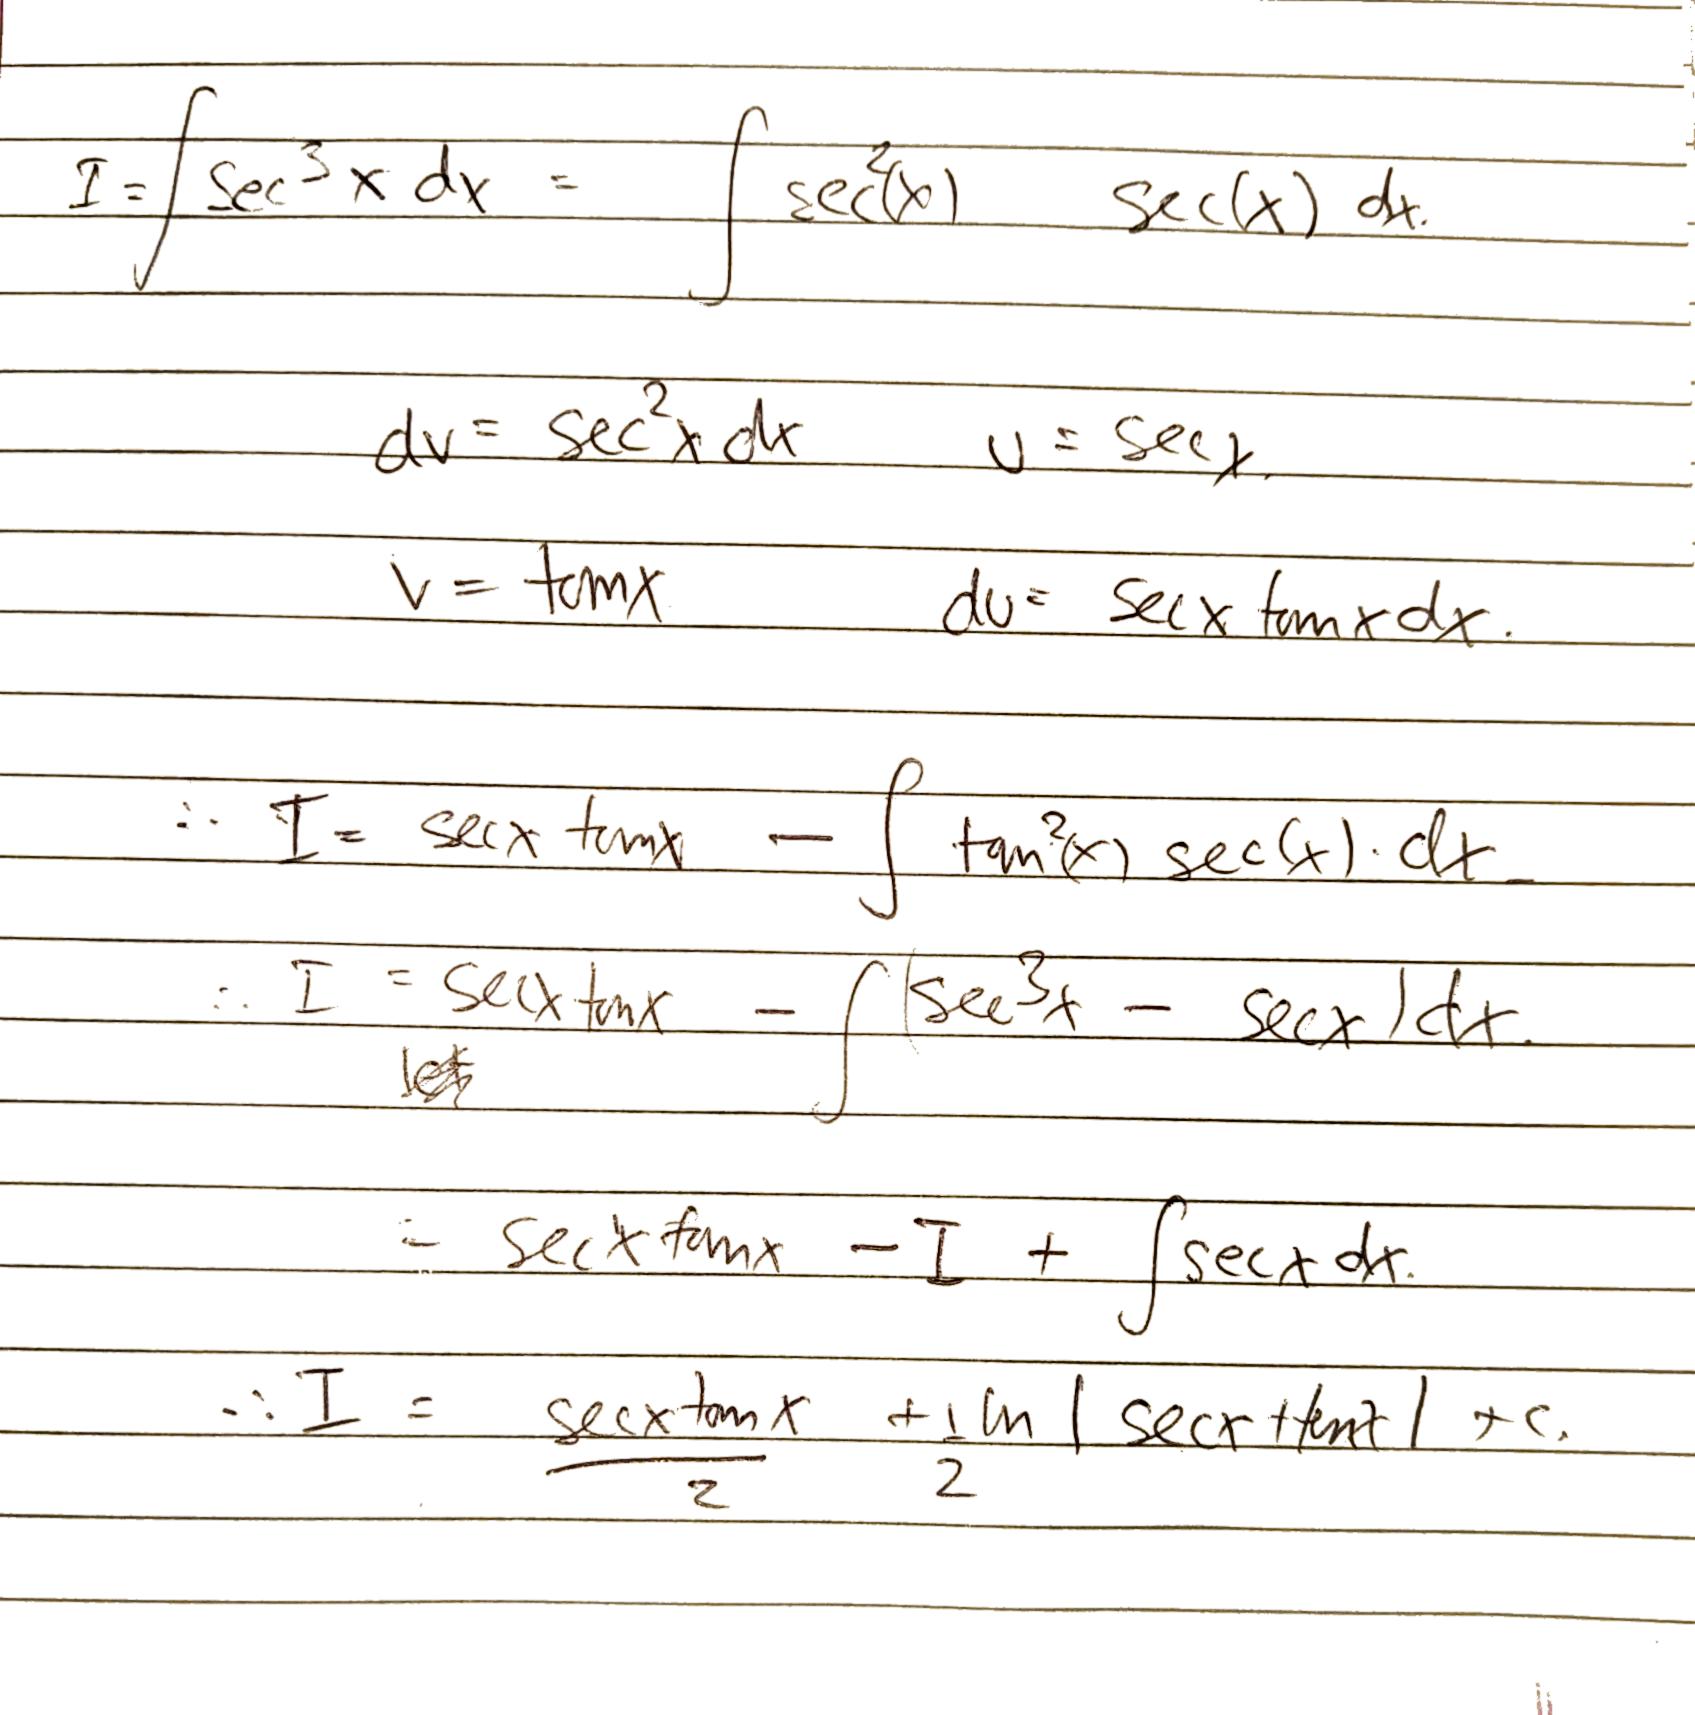 I = ∫ sec³x dx = ∫ sec²(x) sec(x) dx.
dv = sec²x dx u = secx.
v = tanx du = secx tanx dx.
∴ I = secx tanx − ∫ tan²(x) sec(x). dx
∴ I = secx tanx − ∫ (sec³x − secx) dx.
= secx tanx − I + ∫ secx dx.
∴ I = secx tanx/2 + 1/2 ln | secx + tanx | + c.